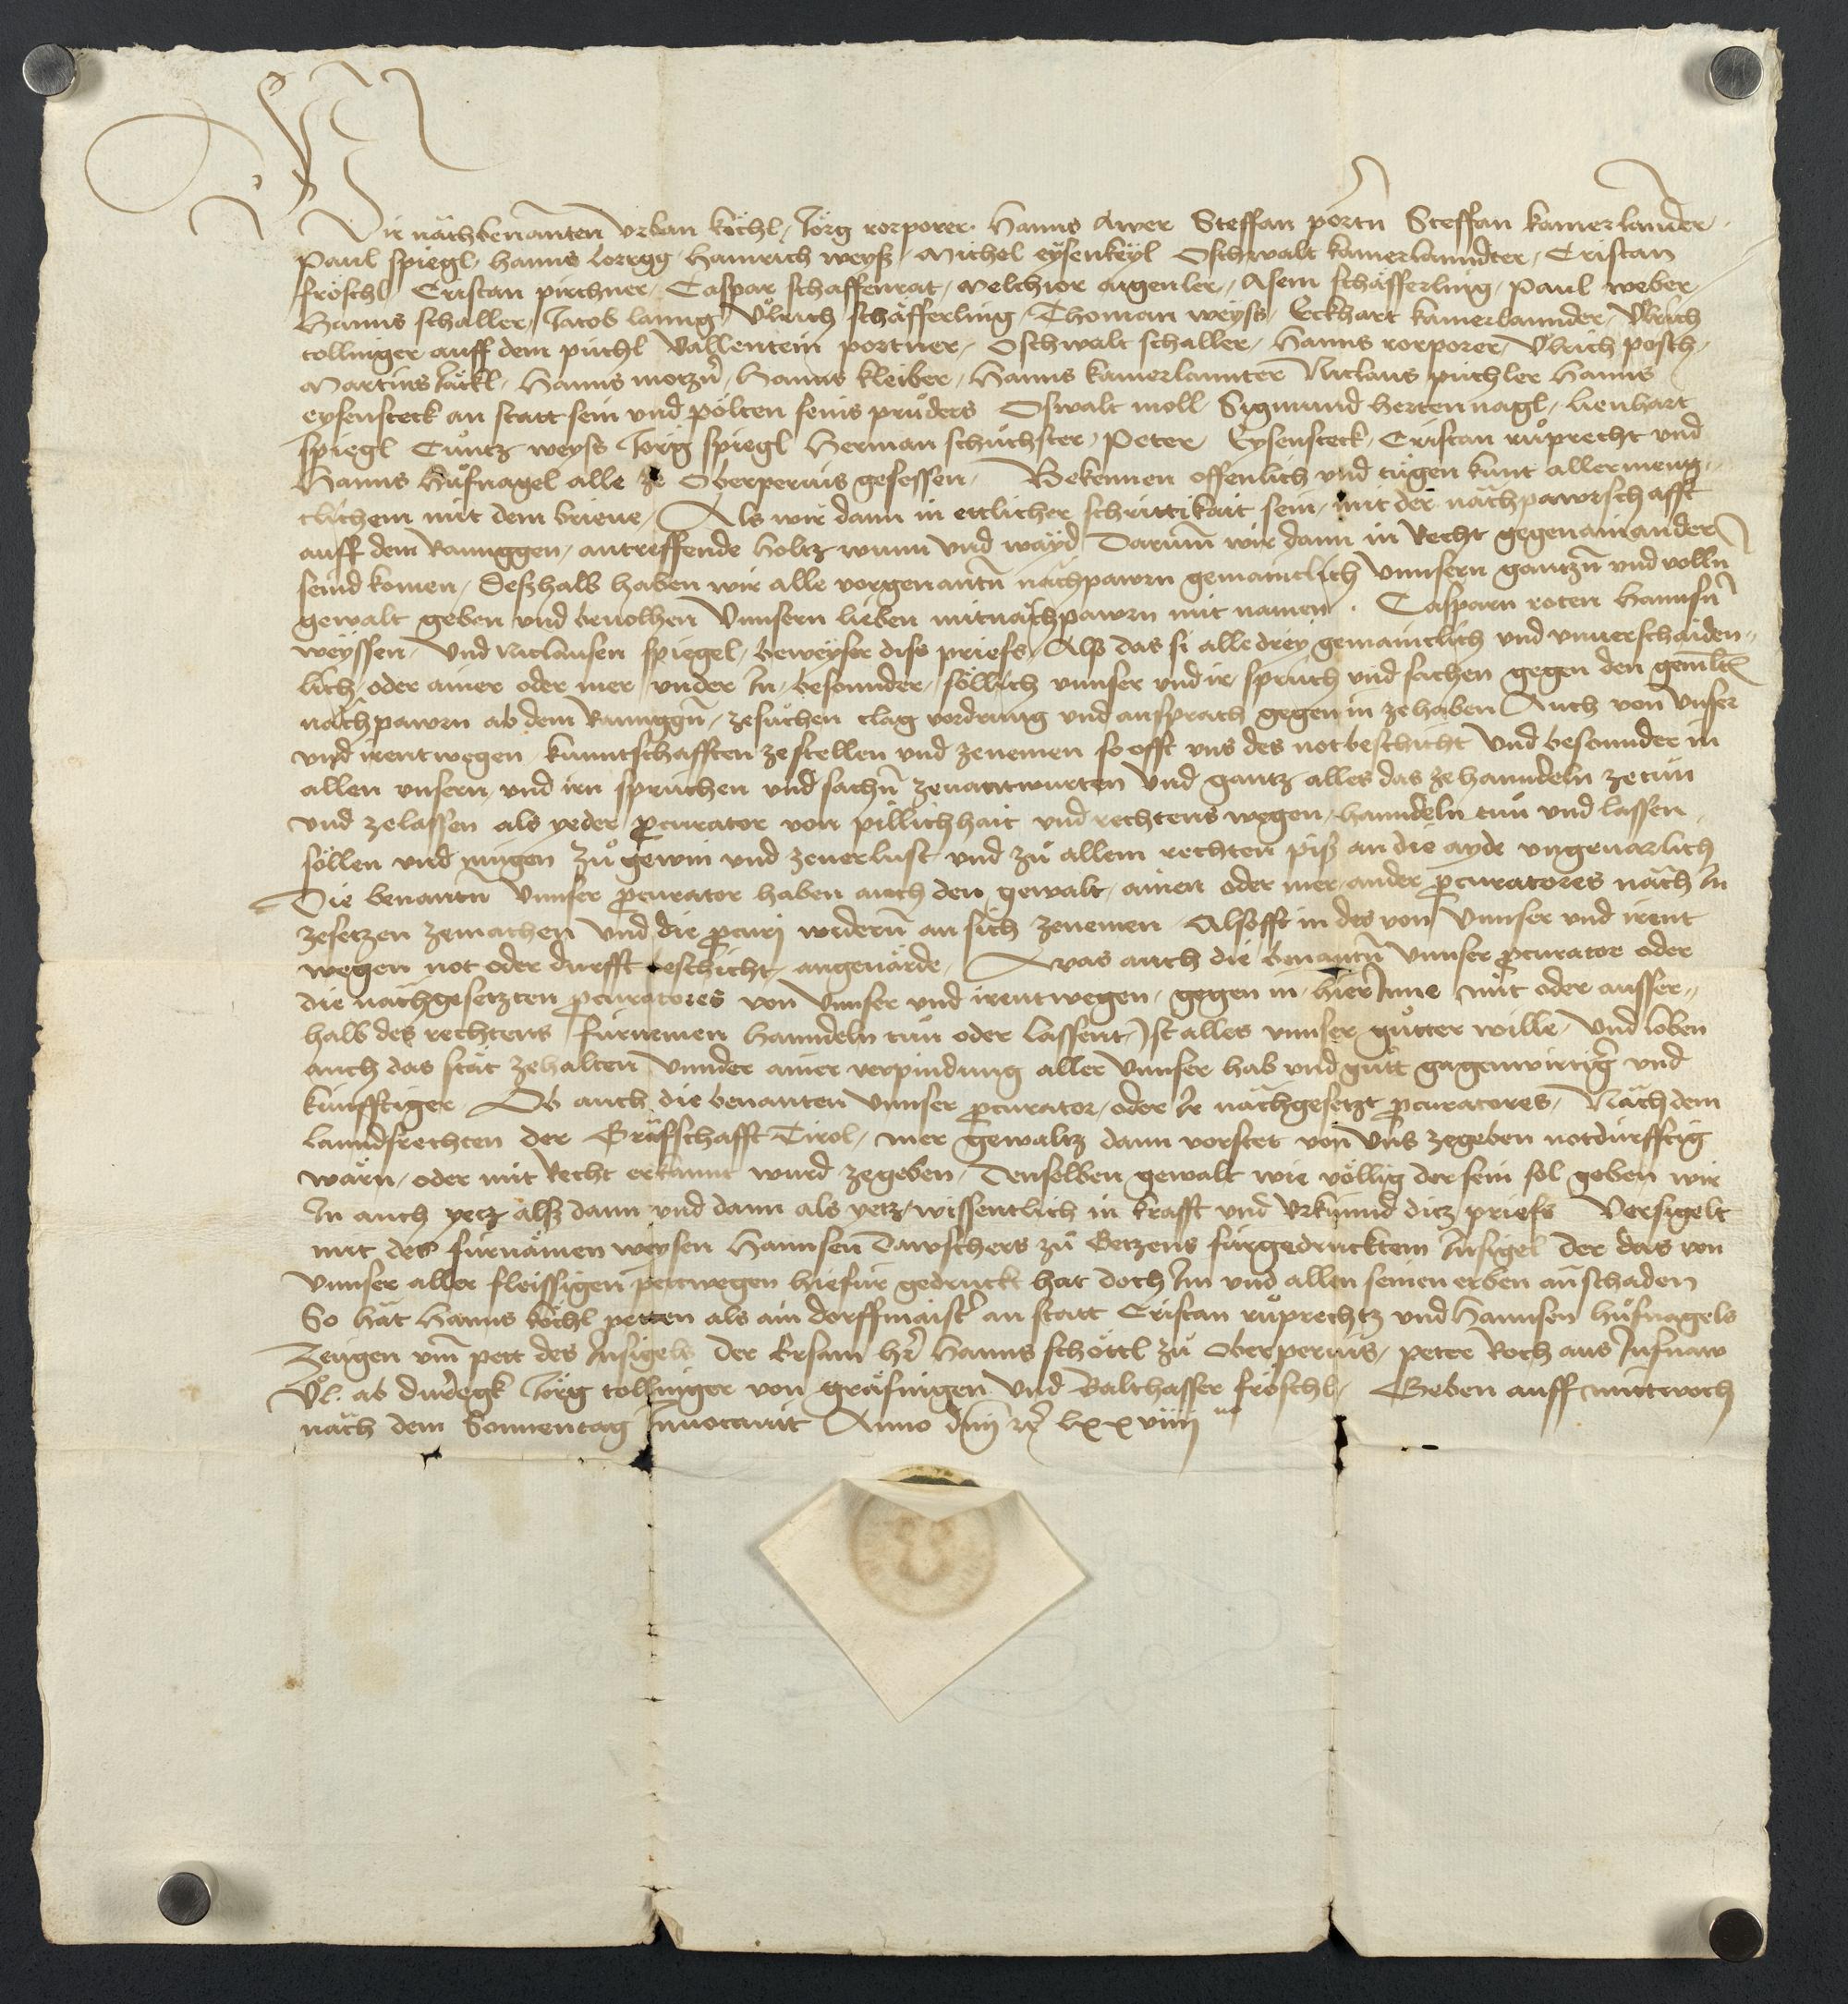 Wir nachbenannten Urban köchl, Jörg rorporer, Hanns Awer Steffan portn̄ Steffan kamerlannder,
Paul spiegl, hanns lorregg, Hainrich weyß, Michel eÿsenkeÿl Oschwalt kamerlanndter, Cristan
fröschl, Cristan pirchner, Caspar schaffenrat, Melchior aigenler, Asem schäfferling, Paul weber,
Hanns schaller, Jacob lanng, Ulrich schäfferling, Thoman weyss, Eckhart kamerlannder, Ulrich
tollinger auff dem puchl Vallentein portner, Oschwalt schaller, Hanns rorporer, Ulrich posch,
Martins Jäckl, Hanns motzn̄, Hanns kleiber, Hanns kamerlannter Niclaus puchler Hanns
eysensteck an statt sein und pölten seins pruders Oswalt moll Sigmund hertennagl, lienhart
spiegl Cuntz weyss Jörg spiegl Herman schuchster, Peter Eysensteck, Cristan ruprecht und
Hanns Hufnagel alle ze Oberperuis gesessen, Bekennen offenlich und tugen kunt allermeng,,
clichem mit dem brieue, Als wir dann in ettlicher schrittikait sein, mit der nachpawrschafft
auff dem Rannggen, antreffende holtz wunn und wayd Darumb wir dann in Recht gegenainander
seind komen, Deßhalb haben wir alle vorgenantn̄ nachpawrn gemaincklich unnsern gantzn̄ und volln̄
gewalt geben und beuolhen Unnsern lieben mitnachpawrn mit namen. Casparn roten Hannsn̄
weÿssen, Und Niclausen spiegel, beweÿser diss priefs, Alß das si alle dreÿ gemaincklich und vnuerschaiden,,
lich, oder ainer oder mer under In, besonnder, söllich unnser und ir spruch und sachen gegen den geml̄
nachpawrn ab dem Rannggn̄, zesuchen clag vordrung und ansprach gegen in zehaben Auch von unser
und irentwegen kunntschafften zestellen und zenemen so offt uns des not beschicht Und besonnder in
allen unsern, und irn spruchen und sachn̄ zeuantwurten Und gantz alles das ze hanndeln zetun
und zelassen als yeder ꝓcurator von pillichhait und rechtens wegen, hanndeln tun und lassen
söllen und mügen zu gewin und zeuerlust und zu allem rechten piß an die ayde ungeuarlich
Die benantn̄ Unnser ꝓcurator haben auch den gewalt, ainen oder mer, ander ꝓcuratores nach In
zesetzen zemachen Und die ꝓcurj widerum̄ an sich zenemen Als offt in des von Unnser und irent
wegen not oder durfft beschicht, angeuärde, Was auch die benantn̄ Unnser ꝓcurator oder
die nachgesetzten ꝓcuratores von Unnser und irentwegen, gegen in, hierInne mit oder ausser,,
halb des rechtens furnemen hanndeln tun oder lassent, Ist alles unnser gutter wille, Und loben
auch das stät zehalten Unnder ainer verpindung aller Unnser hab und gutt gegenwirtig̕ und
künfftiger. Ob auch die benanten Unnser ꝓcurator, oder Ir nachgesetzt ꝓcuratores, Nach dem
lanndsrechten der Grafschafft Tirol, mer gewaltz dann vorstet von Uns zegeben notdurfftig
wärn, oder mit Recht erkannt wurd zegeben, Denselben gewalt wie völlig der sein sol geben wir
In auch yetz alß dann und dann als yetz, wissentlich in krafft und Urkunnd ditz priefs Versigelt
mit des furnämen weysen Hannsen Dawschers zu Getzens furgedrucktem Insigel der das von
Unnser aller fleissigen pett wegen hiefur gedruckt hat doch Im und allen seinen erben anschaden
So hat Hanns köchl petten als ain dorffmaistr̄ an statt Cristan ruprechtz und Hannsen hufnagels
Zeugen um̄ pett des Insigels der Ersam hr̄ Hanns schöttl zu Oberperuis, peter Koch aus Insnaw
Ul. ab duregk Jörg tollinger von gräfnigen Und Balthasser fröschl, Geben auff mittwoch
nach dem Sonnentag Inuocauit Anno dm̄ rc̄ lxxviiij no